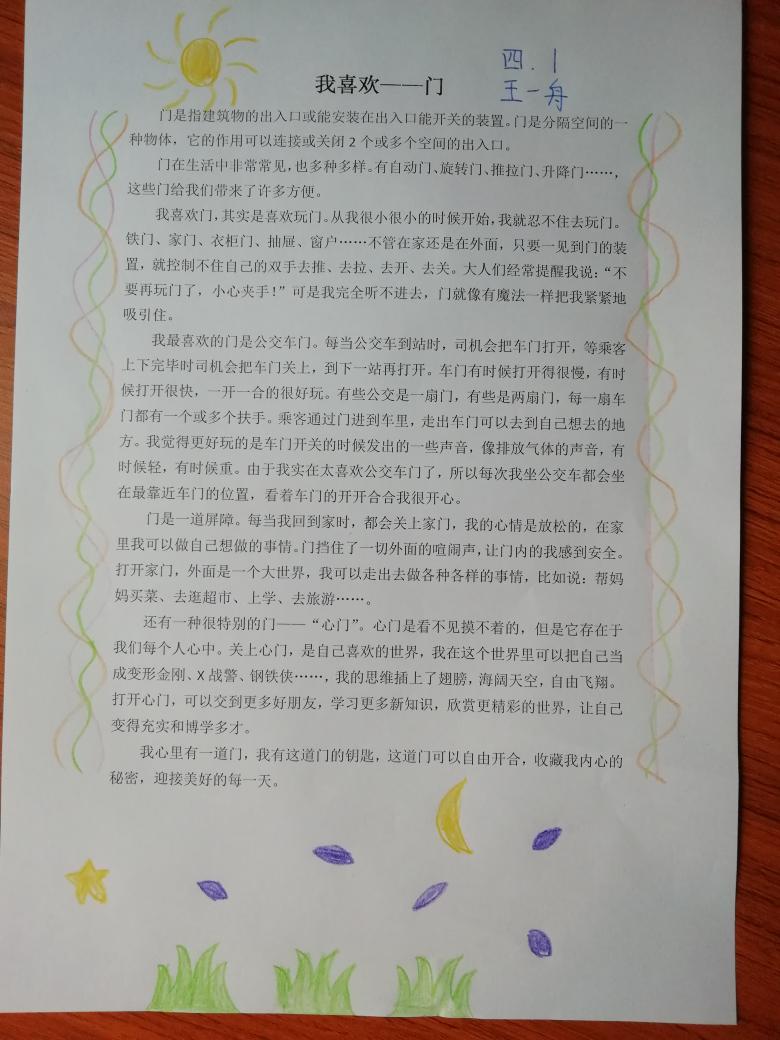 我喜欢——门
四.1
王一舟
门是指建筑物的出入口或能安装在出入口能开关的装置。门是分隔空间的一
种物体，它的作用可以连接或关闭2个或多个空间的出入口。
门在生活中非常常见，也多种多样。有自动门、旋转门、推拉门、升降门……，
这些门给我们带来了许多方便。
我喜欢门，其实是喜欢玩门。从我很小很小的时候开始，我就忍不住去玩门。
铁门、家门、衣柜门、抽屉、窗户……不管在家还是在外面，只要一见到门的装
置，就控制不住自己的双手去推、去拉、去开、去关。大人们经常提醒我说：“不
要再玩门了，小心夹手！”可是我完全听不进去，门就像有魔法一样把我紧紧地
吸引住。
我最喜欢的门是公交车门。每当公交车到站时，司机会把车门打开，等乘客
上下完毕时司机会把车门关上，到下一站再打开。车门有时候打开得很慢，有时
候打开很快，一开一合的很好玩。有些公交是一扇门，有些是两扇门，每一扇车
门都有一个或多个扶手。乘客通过门进到车里，走出车门可以去到自己想去的地
方。我觉得更好玩的是车门开关的时候发出的一些声音，像排放气体的声音，有
时候轻，有时候重。由于我实在太喜欢公交车门了，所以每次我坐公交车都会坐
在最靠近车门的位置，看着车门的开开合合我很开心。
门是一道屏障。每当我回到家时，都会关上家门，我的心情是放松的，在家
里我可以做自己想做的事情。门挡住了一切外面的喧闹声，让门内的我感到安全。
打开家门，外面是一个大世界，我可以走出去做各种各样的事情，比如说：帮妈
妈买菜、去逛超市、上学、去旅游……。
还有一种很特别的门——“心门”。心门是看不见摸不着的，但是它存在于
我们每个人心中。关上心门，是自己喜欢的世界，我在这个世界里可以把自己当
成变形金刚、X战警、钢铁侠……，我的思维插上了翅膀，海阔天空，自由飞翔。
打开心门，可以交到更多好朋友，学习更多新知识，欣赏更精彩的世界，让自己
变得充实和博学多才。
我心里有一道门，我有这道门的钥匙，这道门可以自由开合，收藏我内心的
秘密，迎接美好的每一天。